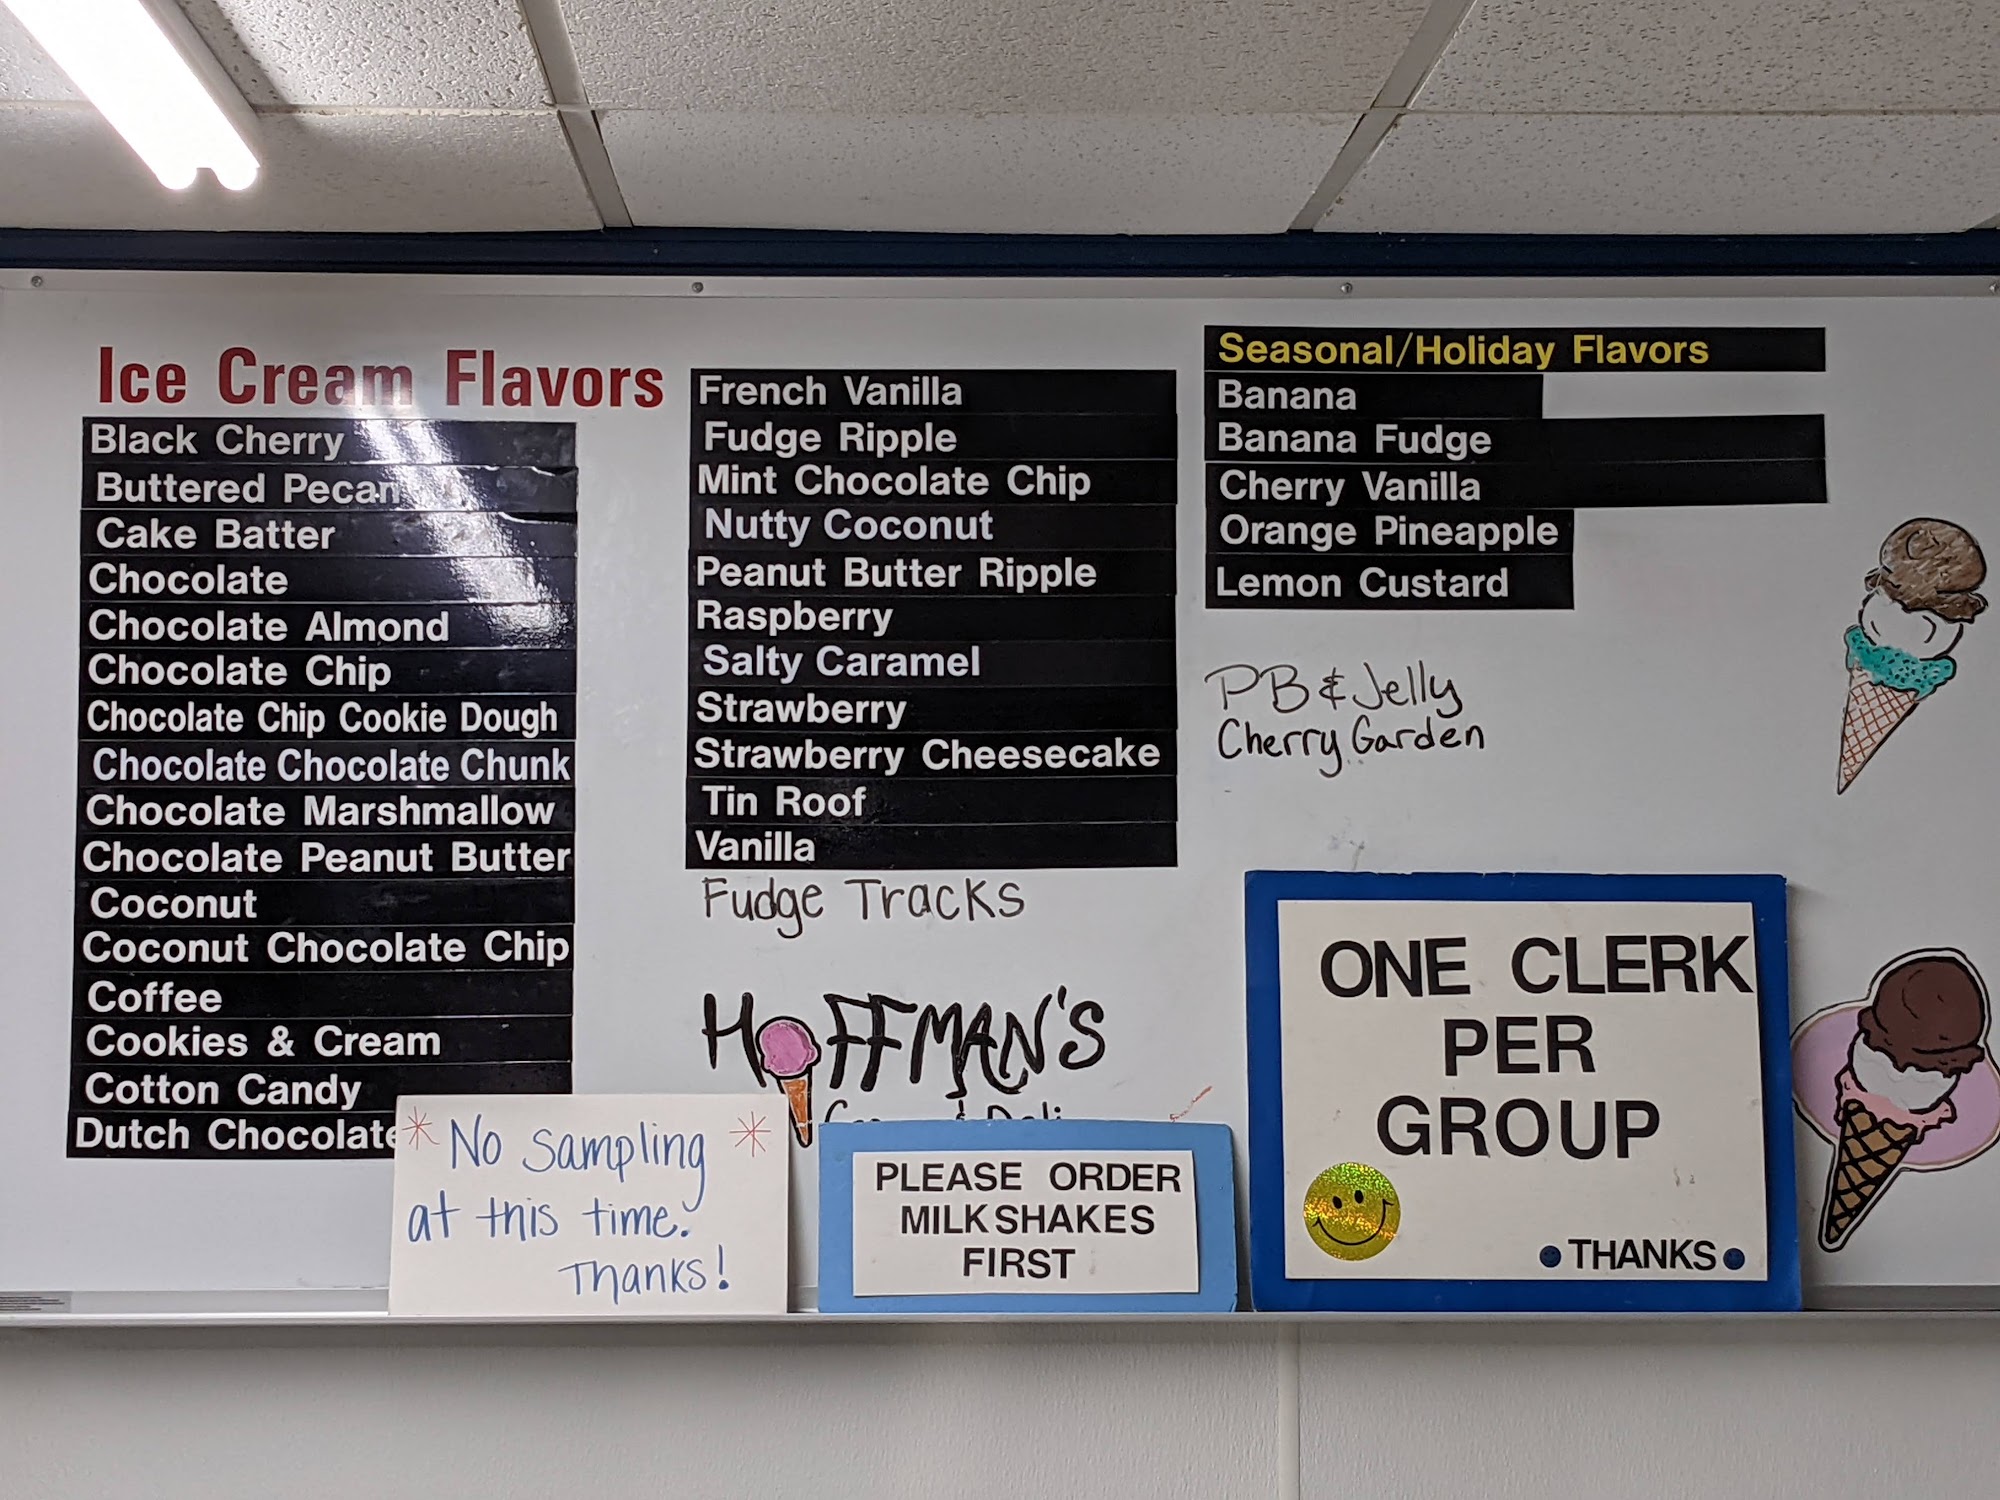 Ice Cream Flavors
Black Cherry
Buttered Pecan
Cake Batter
Chocolate
Chocolate Almond
Chocolate Chip
Chocolate Chip Cookie Dough
Chocolate Chocolate Chunk
Chocolate Marshmallow
Chocolate Peanut Butter
Coconut
Coconut Chocolate Chip
Coffee
Cookies & Cream
Cotton Candy
Dutch Chocolate
French Vanilla
Fudge Ripple
Mint Chocolate Chip
Nutty Coconut
Peanut Butter Ripple
Raspberry
Salty Caramel
Strawberry
Strawberry Cheesecake
Tin Roof
Vanilla
Fudge Tracks
HOFFMAN'S
& Deli
Seasonal/Holiday Flavors
Banana
Banana Fudge
Cherry Vanilla
Orange Pineapple
Lemon Custard
PB & Jelly
Cherry Garden
No sampling
at this time.
Thanks!
PLEASE ORDER
MILKSHAKES
FIRST
ONE CLERK
PER
GROUP
THANKS